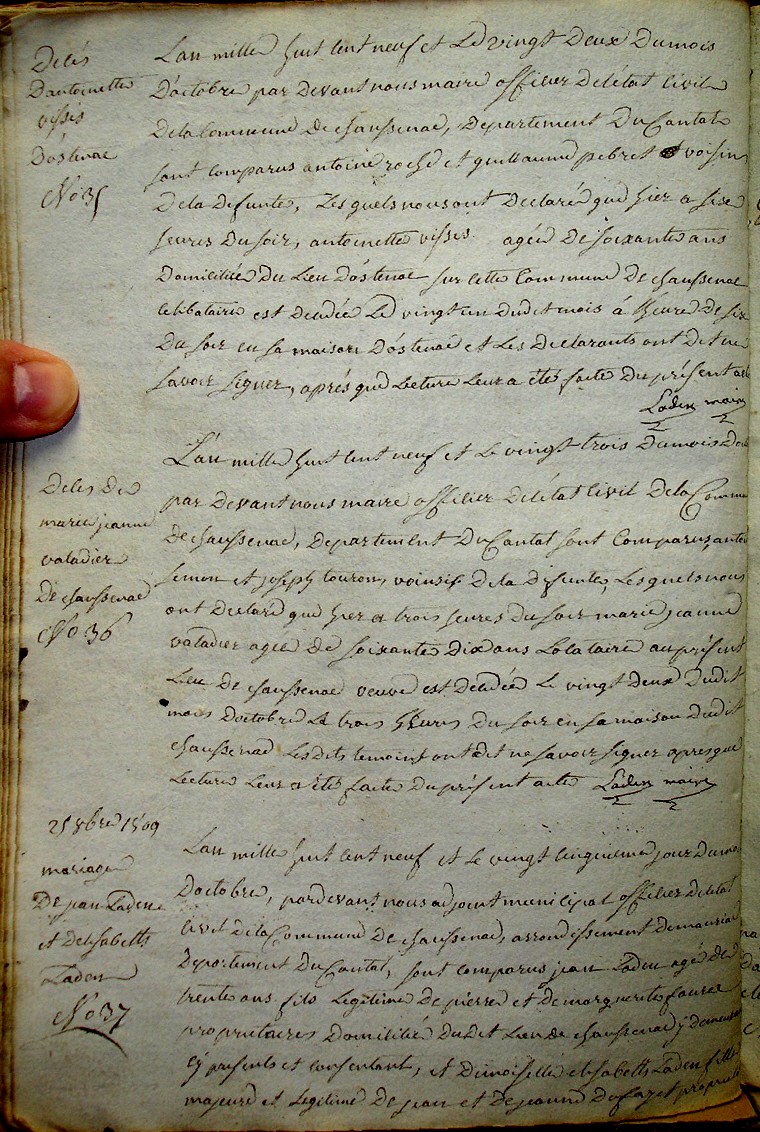 Delés
D'antoinette
vissis
D'ostenac
No 35
L'an mille huit cent neuf et Le vingt Deux Dumois
D'octobre par devant nous maire officier Delétat civil
Dela Commune De chaussenac, Departement Du Cantal
sont comparus antoine roche et guillaume pebret et voisin
Dela Defunte, Les quels nous ont Declaré que hier a six
heures Du soir, antoinette vissis agée De soixante ans
Domiciliée Du Lieu D'ostenac sur cette Commune De chaussenac
celibataire est Decedée Le vingt un Dudit mois á Lheure De six
Du soir en sa maison D'óstenac et Les Declarants ont Dit ne
savoir signer, aprés que Lecture Leur a été faite Du présent acte
Laden maire
Delés De
marie jeanne
valadier
De chaussenac
No 36
L'an mille huit cent neuf et Le vingt trois Dumois
par Devant nous maire officier Delétat Civil Dela Commu
De chaussenac, Departement Du Cantal sont Comparus, antoi
semon et joseph touron, voinsix Dela Defunte, Les quels nous
ont Declaré que hier a trois heures Du soir marie jeanne
valadier agée De soixante Dix ans Lolataire au présent
Lieu De chaussenac veuve est Decedée Le vingt Deux Dudit
mois Doctobre Le trois hEures Du soir en sa maison Dudit
chaussenac Lesdits temoint ont dit ne savoir signer apres que
Lecture Leur a été faite Du présent acte Laden maire
25 8bre 1809
mariage
De jean Laden
et Delisabette
Laden
No 37
L'an mille huit cent neuf et Le vingt cinquieme jour Dumoi
Doctobre, pardevant nous adjoint municipal officier Delétat
civil Dela Commune De chaussenac, arrondissement De mauriac
Departement Du Cantal, sont comparus jean Laden agé De
trente ans fils Legitime De pierre et De marguerite faurie
propriétaires Domicilié Dudit Lieu De chaussenac y Demeurant
cy presents et consentant, et Demoiselle elisabette Laden fille
majeure et Legitime De jean et De jeanne Dufayet propriét